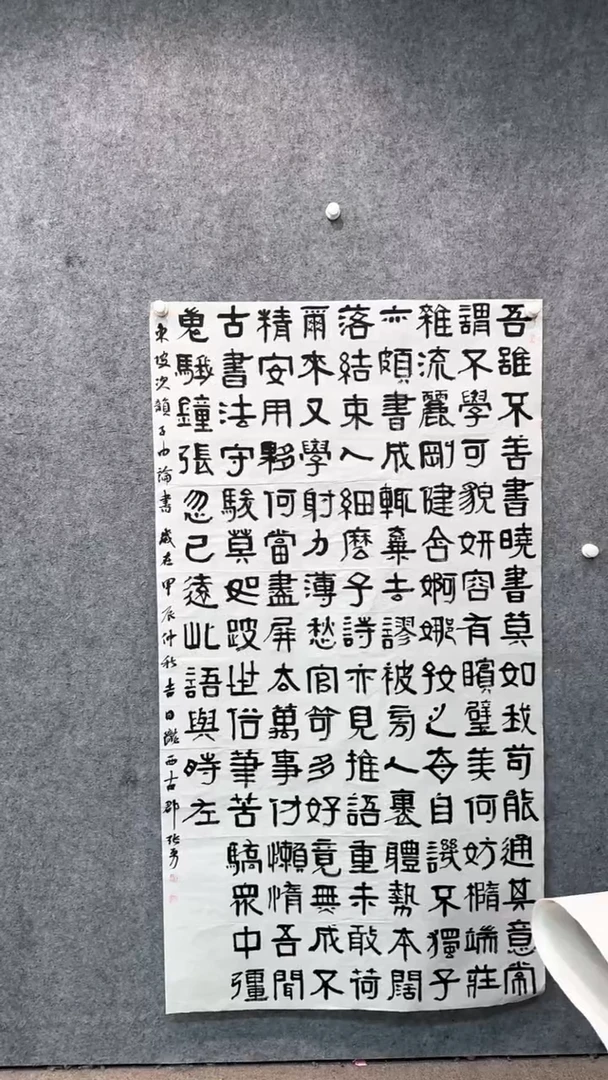 吾雖不善書曉書莫如我苟能通其意常
謂不學可貌妍容有矉璧美何妨橢端莊
雜流麗剛健含婀娜好之每自譏不獨子
亦頗書成輒棄去謬被旁人裹體勢本闊
落結束入細麼子詩亦見推語重未敢荷
爾來又學射力薄愁官笴多好竟無成不
精安用夥何當盡屏太萬事付懶惰吾聞
古書法守駿莫如跛世俗筆苦驕眾中彊
嵬騀鐘張忽已遠此語與時左
東坡次韻子由論書 歲在甲辰仲秋吉日隴西古郡張勇